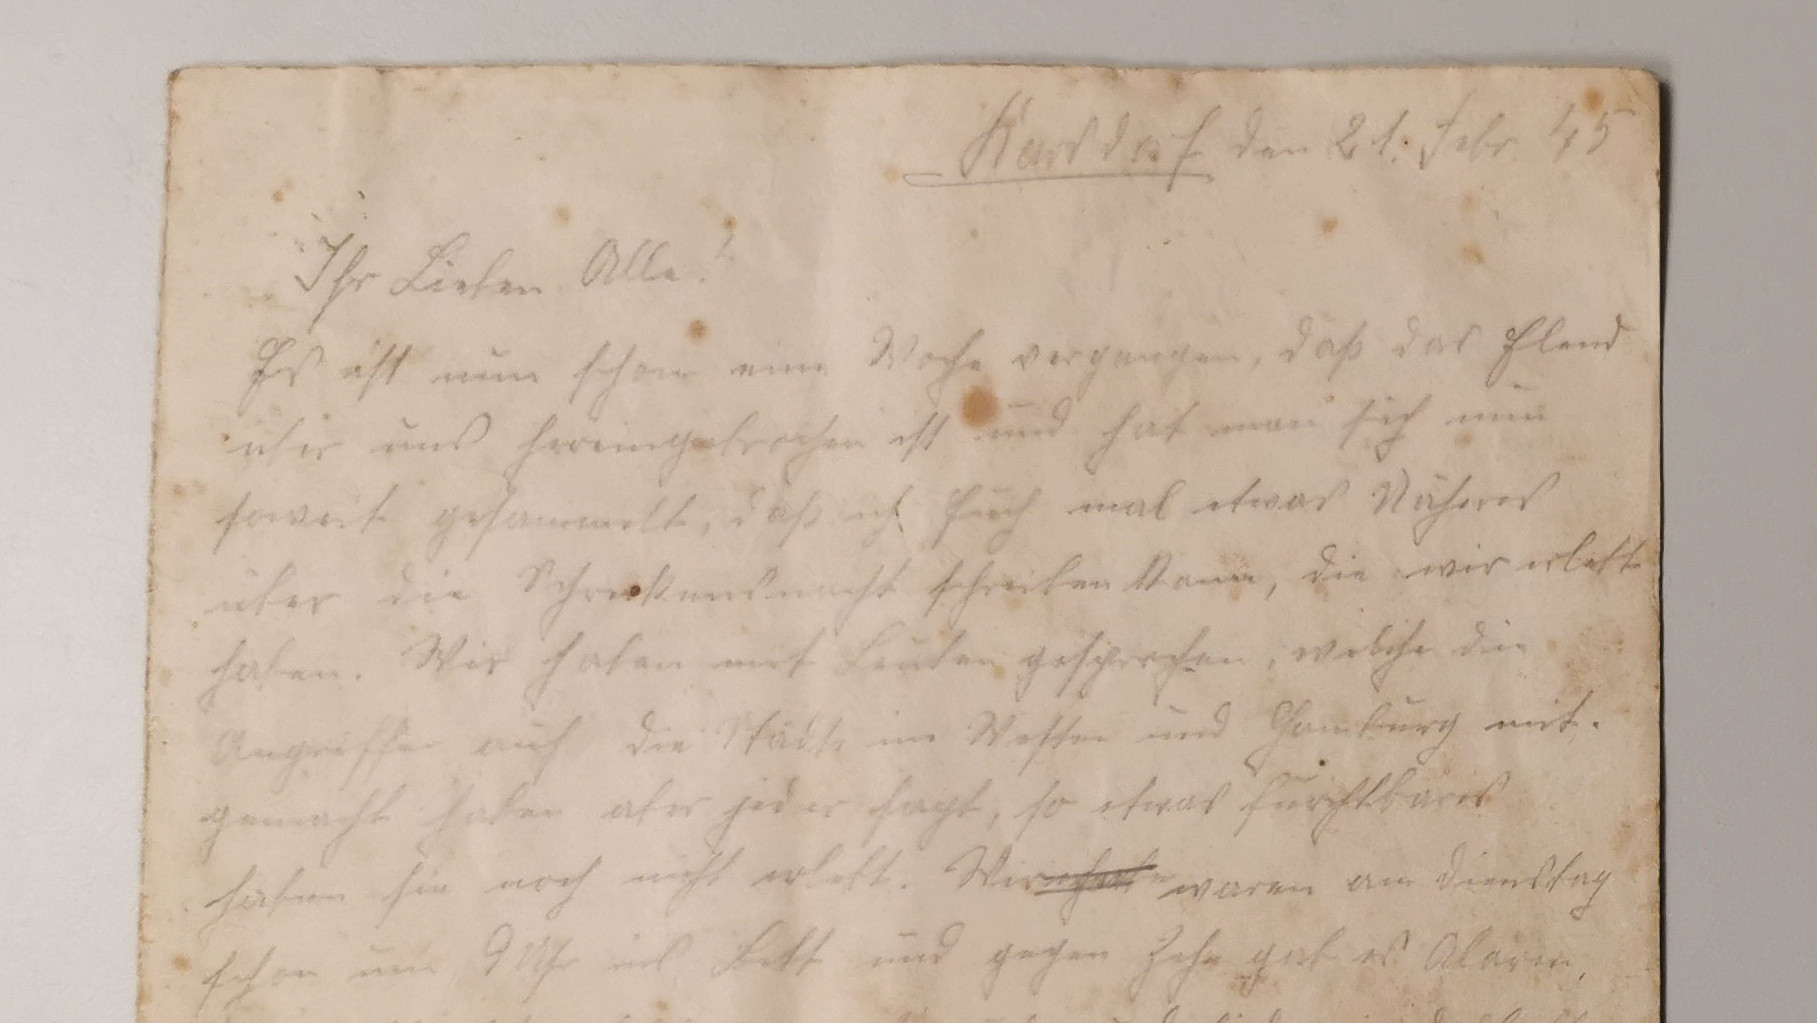 Karsdorf den 21. Febr. 45
Ihr Lieben Alle!
Es ist nun schon eine Woche vergangen, daß das Elend
über uns hereingebrochen ist und hat man sich nun
soweit gesammelt, daß ich Euch mal etwas Näheres
über die Schreckensnacht schreiben kann, die wir erlebt
haben. Wir haben mit Leuten gesprochen, welche die
Angriffe auf die Städte im Westen und Hamburg mit-
gemacht haben aber jeder sagt, so etwas furchtbares
haben sie noch nicht erlebt. Wir waren am Dienstag
schon um 9 Uhr ins Bett und gegen Zehn gab es Alarm,